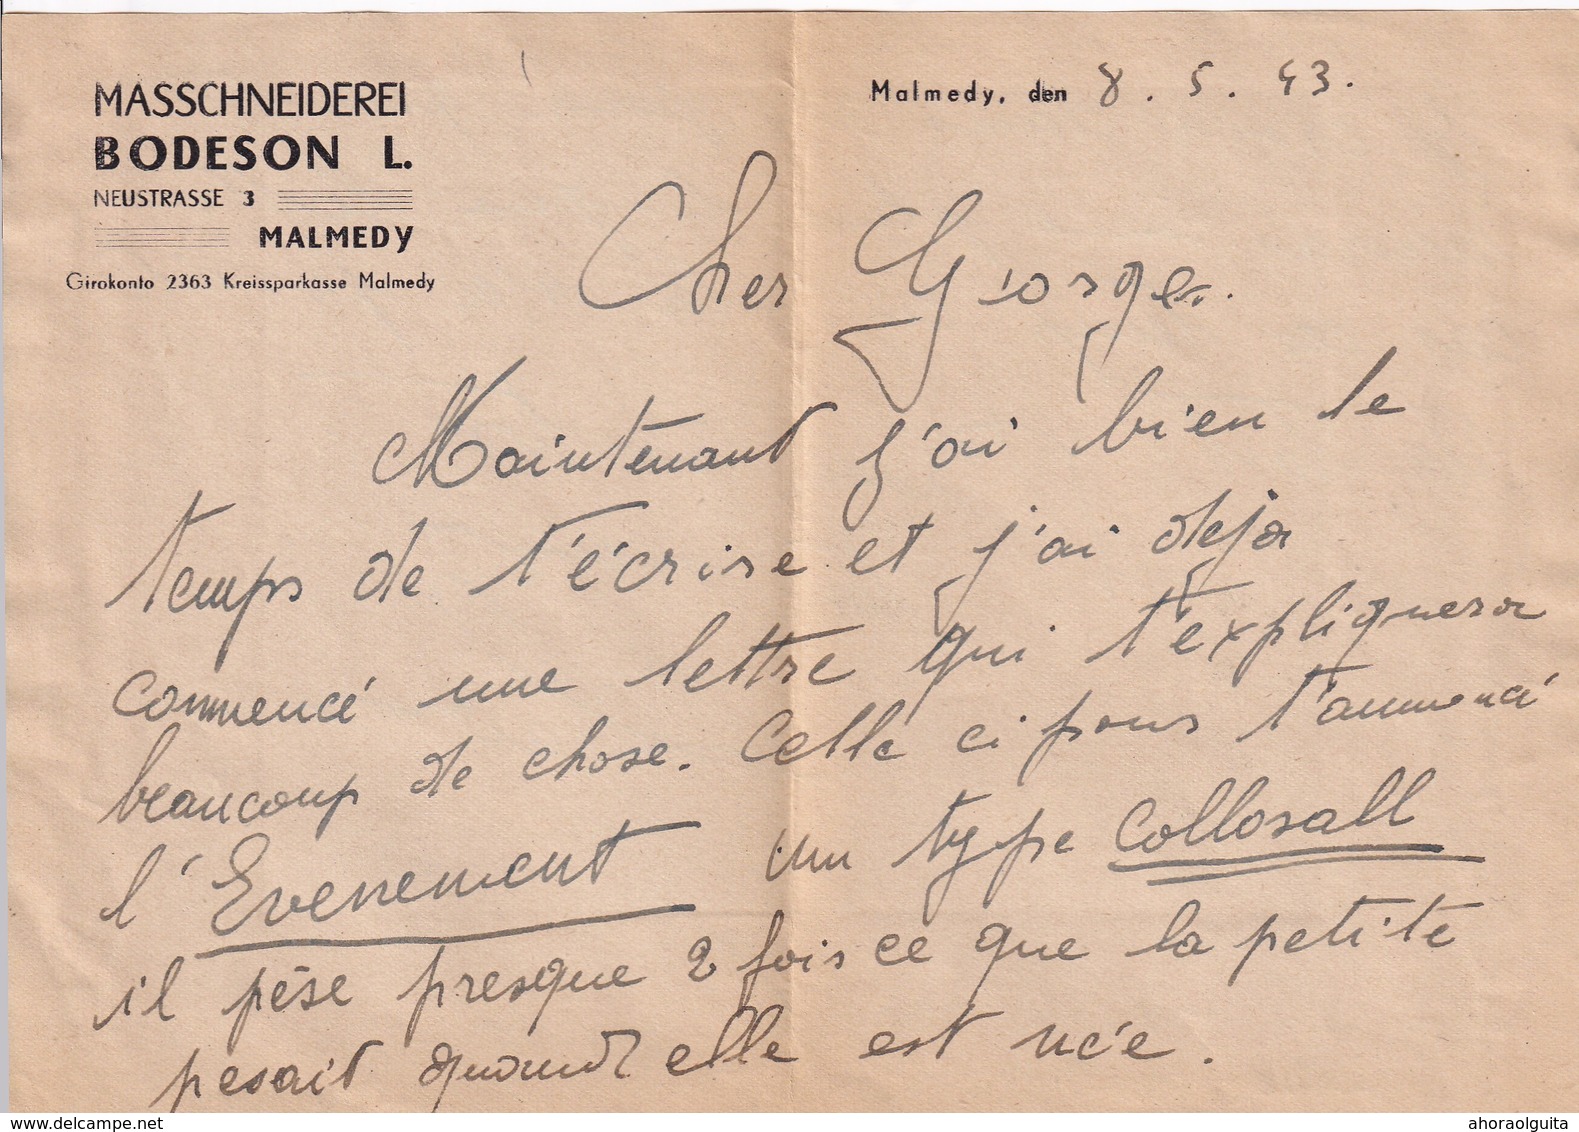 MASSCHNEIDEREI
BODESON L.
NEUSTRASSE 3
MALMEDY
Girokonto 2363 Kreissparkasse Malmedy
Malmedy, den 8.5.43.
Cher Georges.
Maintenant j'ai bien le
temps de t'écrire et j'ai deja
commencé une lettre qui t'expliquera
beaucoup de chose. Celle ci pour t'annoncé
l'Evenement un type Collosall
il pèse presque 2 fois ce que la petite
pesait quand elle est née.
www.delcampe.net
ahoraolguita